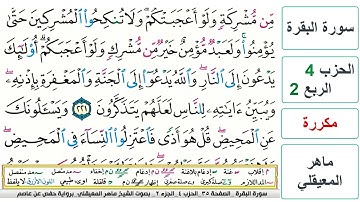 مِّن مُّشْرِكَةٍ وَلَوْ أَعْجَبَتْكُمْ ۗ وَلَا تُنكِحُوا۟ ٱلْمُشْرِكِينَ حَتَّىٰ
يُؤْمِنُوا۟ ۚ وَلَعَبْدٌ مُّؤْمِنٌ خَيْرٌ مِّن مُّشْرِكٍ وَلَوْ أَعْجَبَكُمْ ۗ أُو۟لَـٰٓئِكَ
يَدْعُونَ إِلَى ٱلنَّارِ ۖ وَٱللَّهُ يَدْعُوٓا۟ إِلَى ٱلْجَنَّةِ وَٱلْمَغْفِرَةِ بِإِذْنِهِۦ ۖ
وَيُبَيِّنُ ءَايَـٰتِهِۦ لِلنَّاسِ لَعَلَّهُمْ يَتَذَكَّرُونَ ٢٢١ وَيَسْـَٔلُونَكَ
عَنِ ٱلْمَحِيضِ ۖ قُلْ هُوَ أَذًى فَٱعْتَزِلُوا۟ ٱلنِّسَآءَ فِى ٱلْمَحِيضِ ۖ
سورة البقرة . الصفحة ٣٥ . الحزب ٤ . الجزء ٢ . بصوت الشيخ ماهر المعيقلي . برواية حفص عن عاصم
سورة البقرة
الحزب 4
الربع 2
مكررة
ماهر
المعيقلي